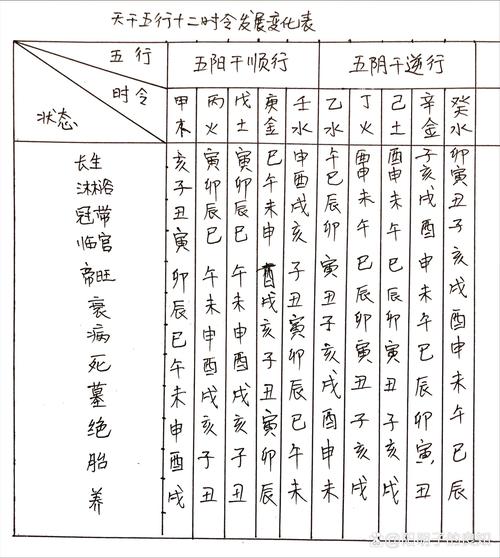 天干五行十二时令发展变化表
五行 五阳干顺行 五阴干逆行
时令
状态
甲 丙 戊 庚 壬 乙 丁 己 辛 癸
木 火 土 金 水 水 火 土 金 水
长生 亥 寅 寅 巳 申 午 酉 酉 子 卯
沐浴 子 卯 卯 午 酉 巳 申 申 亥 寅
冠带 丑 辰 辰 未 戌 辰 未 未 戌 丑
临宫 寅 巳 巳 申 亥 卯 午 午 酉 子
帝旺 卯 午 午 酉 子 寅 巳 巳 申 亥
衰 辰 未 未 戌 丑 丑 辰 辰 未 戌
病 巳 申 申 亥 寅 子 卯 卯 午 酉
死 午 酉 酉 子 卯 亥 寅 寅 巳 申
墓 未 戌 戌 丑 辰 戌 丑 丑 辰 未
绝 申 亥 亥 寅 巳 酉 子 子 卯 午
胎 酉 子 子 卯 午 申 亥 亥 寅 巳
养 戌 丑 丑 辰 未 未 戌 戌 丑 辰